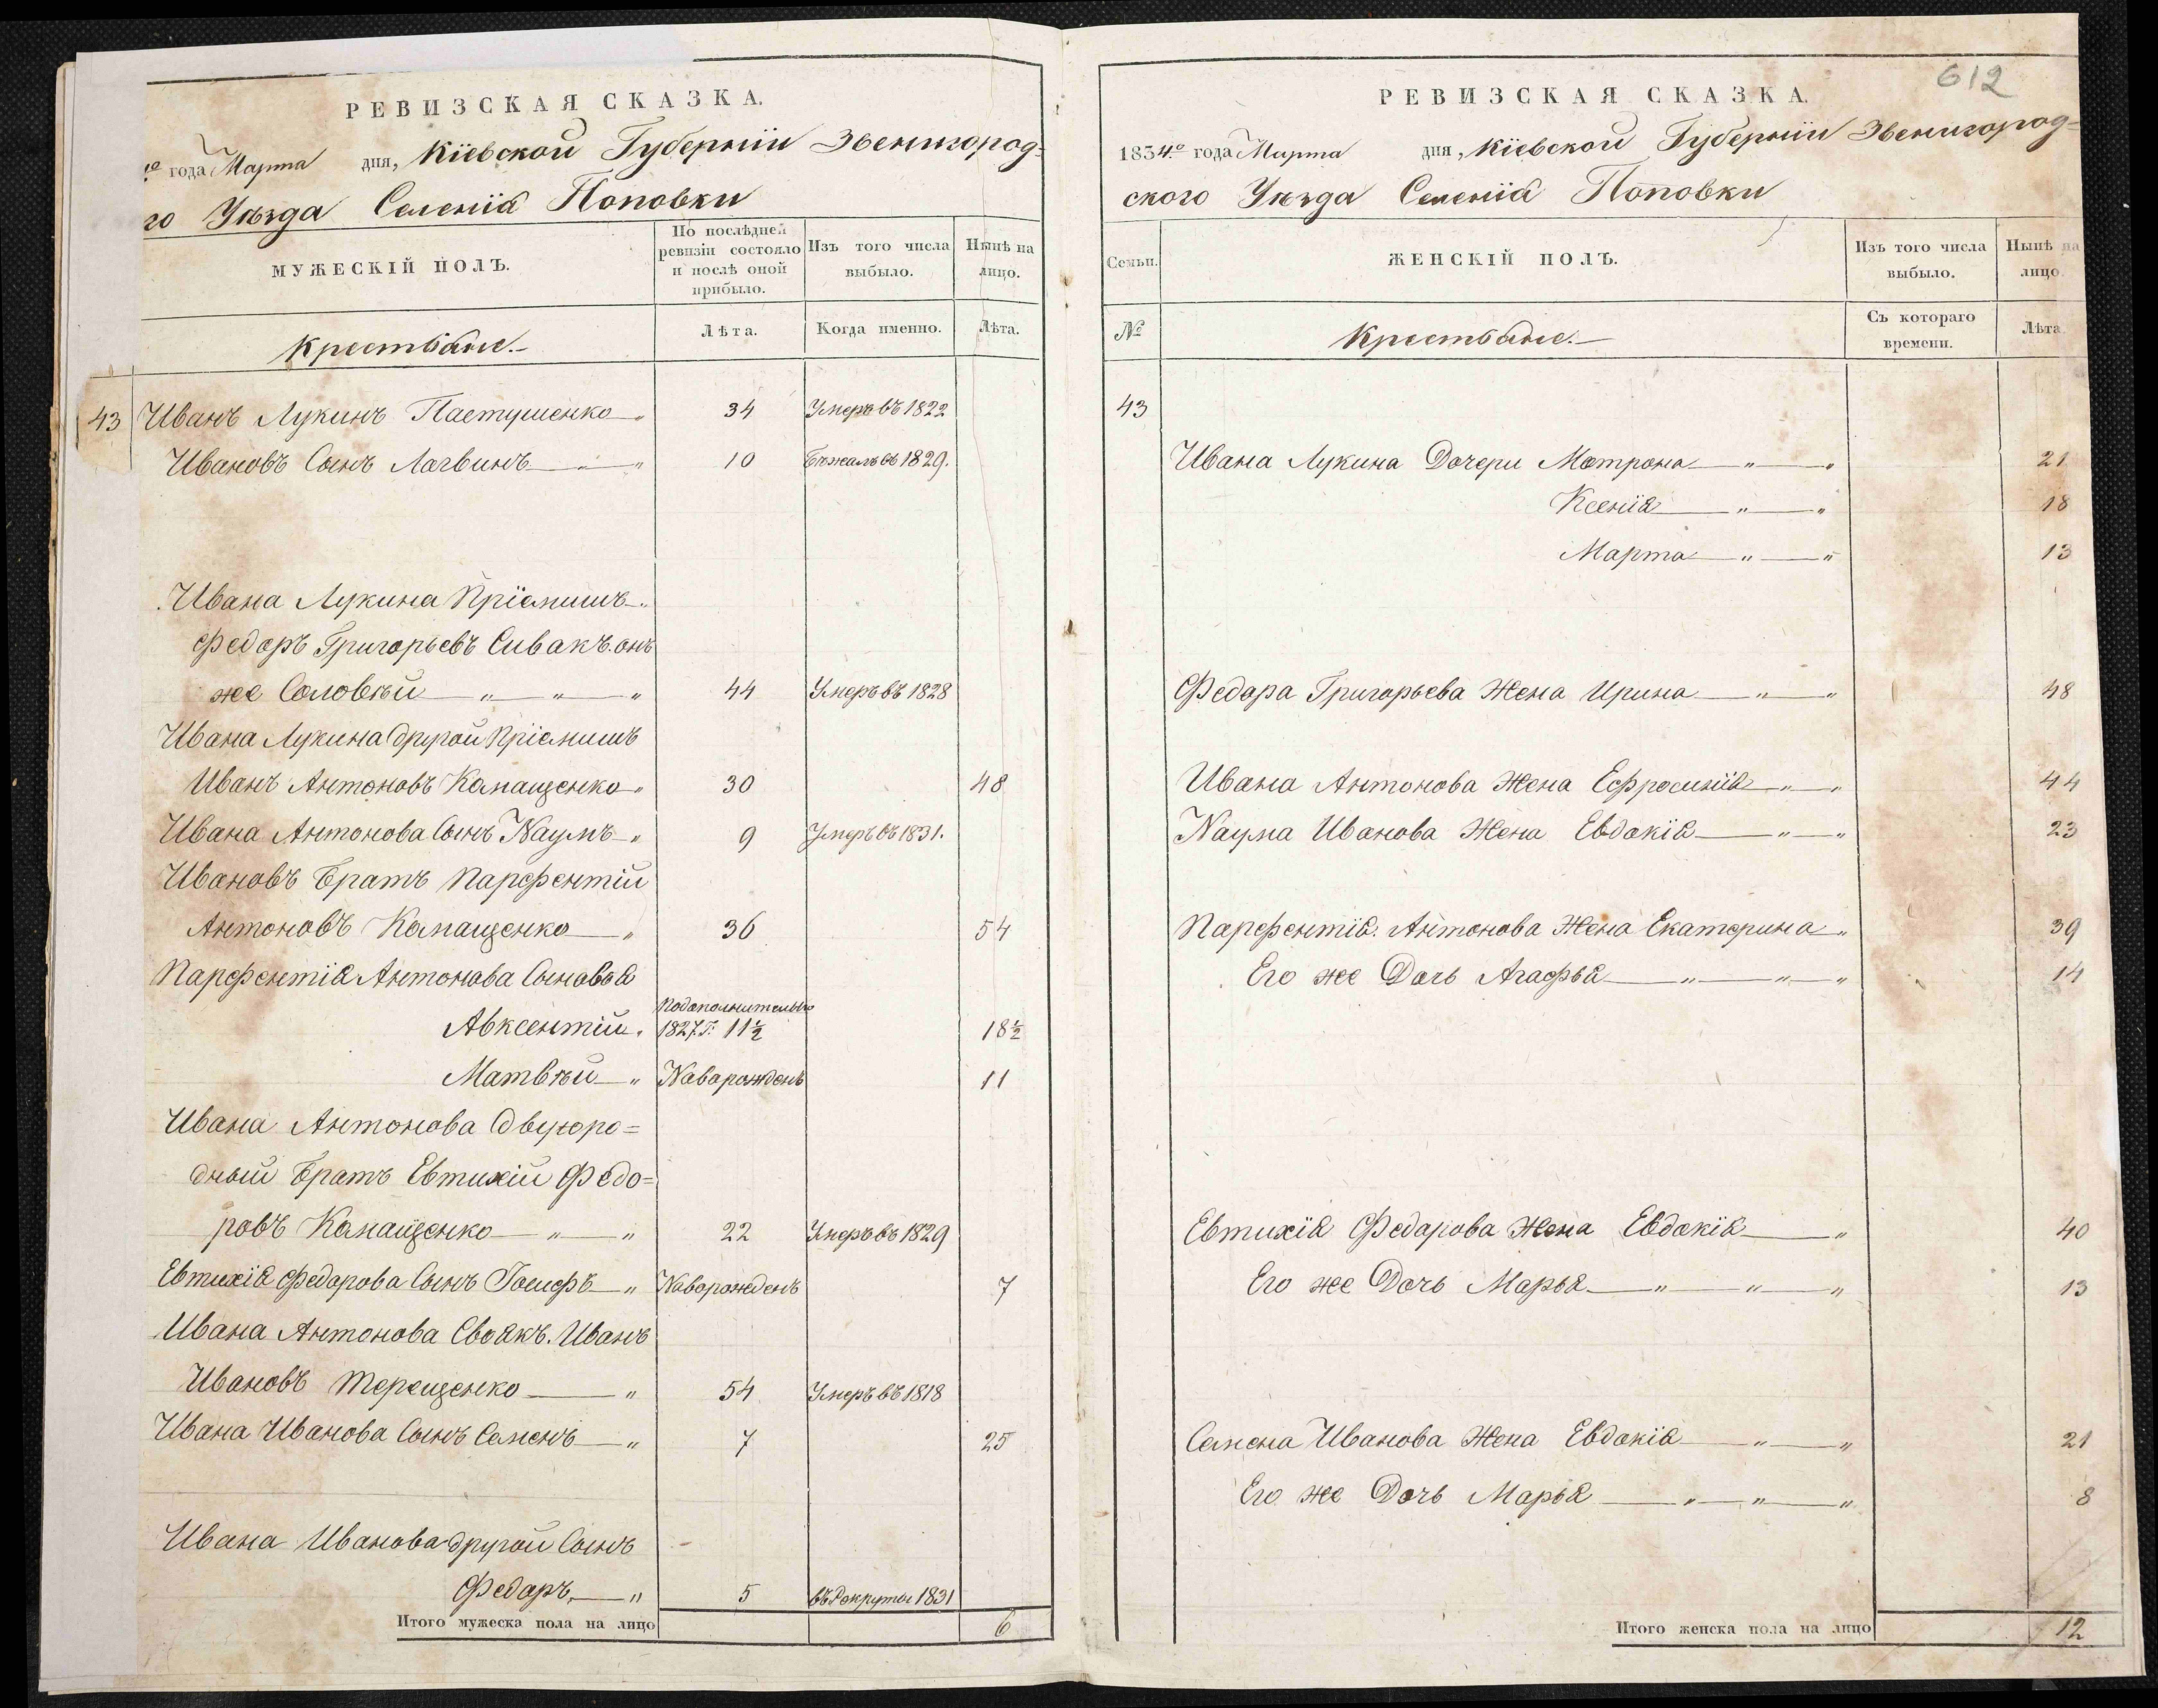 РЕВИЗСКАЯ СКАЗКА.
года Марта дня, Кіевской Губерніи Звенигород-
го Уѣзда Селенія Поповки
МУЖЕСКІЙ ПОЛЪ.
По послѣдней ревизіи состояло и послѣ оной прибыло.
Изъ того числа выбыло.
Нынѣ на лицо.
Крестьяне.
Лѣта.
Когда именно.
Лѣта.
43 Иванъ Лукинъ Пастушенко 34 Умеръ въ 1822
Ивановъ Сынъ Логвинъ 10 Бѣжалъ въ 1829.
Ивана Лукина Пріемишъ
Федоръ Григорьевъ Сивакъ онъ
же Соловѣй 44 Умеръ въ 1828
Ивана Лукина другой Пріемишъ
Иванъ Антоновъ Комащенко 30 48
Ивана Антонова Сынъ Наумъ 9 Умеръ въ 1831.
Ивановъ Братъ Парфентій
Антоновъ Комащенко 36 54
Парфентія Антонова Сыновья
Подополнительно
Авксентій 1827 г. 11½ 18½
Матвѣй Новорожденъ 11
Ивана Антонова двуюро=
дный Братъ Евтихій Федо=
ровъ Комащенко 22 Умеръ въ 1829
Евтихія Федорова Сынъ Іосифъ Новорожденъ 7
Ивана Антонова Своякъ. Иванъ
Ивановъ Терещенко 54 Умеръ въ 1818
Ивана Иванова Сынъ Семенъ 7 25
Ивана Иванова другой Сынъ
Федоръ 5 въ Рекруты 1831
Итого мужеска пола на лицо 6
612
РЕВИЗСКАЯ СКАЗКА.
1834го года Марта дня, Кіевской Губерніи Звенигород=
ского Уѣзда Селенія Поповки
Семьи.
ЖЕНСКІЙ ПОЛЪ.
Изъ того числа выбыло.
Нынѣ на лицо.
№
Крестьяне.
Съ котораго времени.
Лѣта.
43
Ивана Лукина Дочери Мотрона 21
Ксенія 18
Марта 13
Федора Григорьева Жена Ирина 48
Ивана Антонова Жена Ефросинія 44
Наума Иванова Жена Евдокія 23
Парфентія Антонова Жена Екатерина 39
Его же Дочь Агафья 14
Евтихія Федорова Жена Евдокія 40
Его же Дочь Марья 13
Семена Иванова Жена Евдокія 21
Его же Дочь Марья 8
Итого женска пола на лицо 12